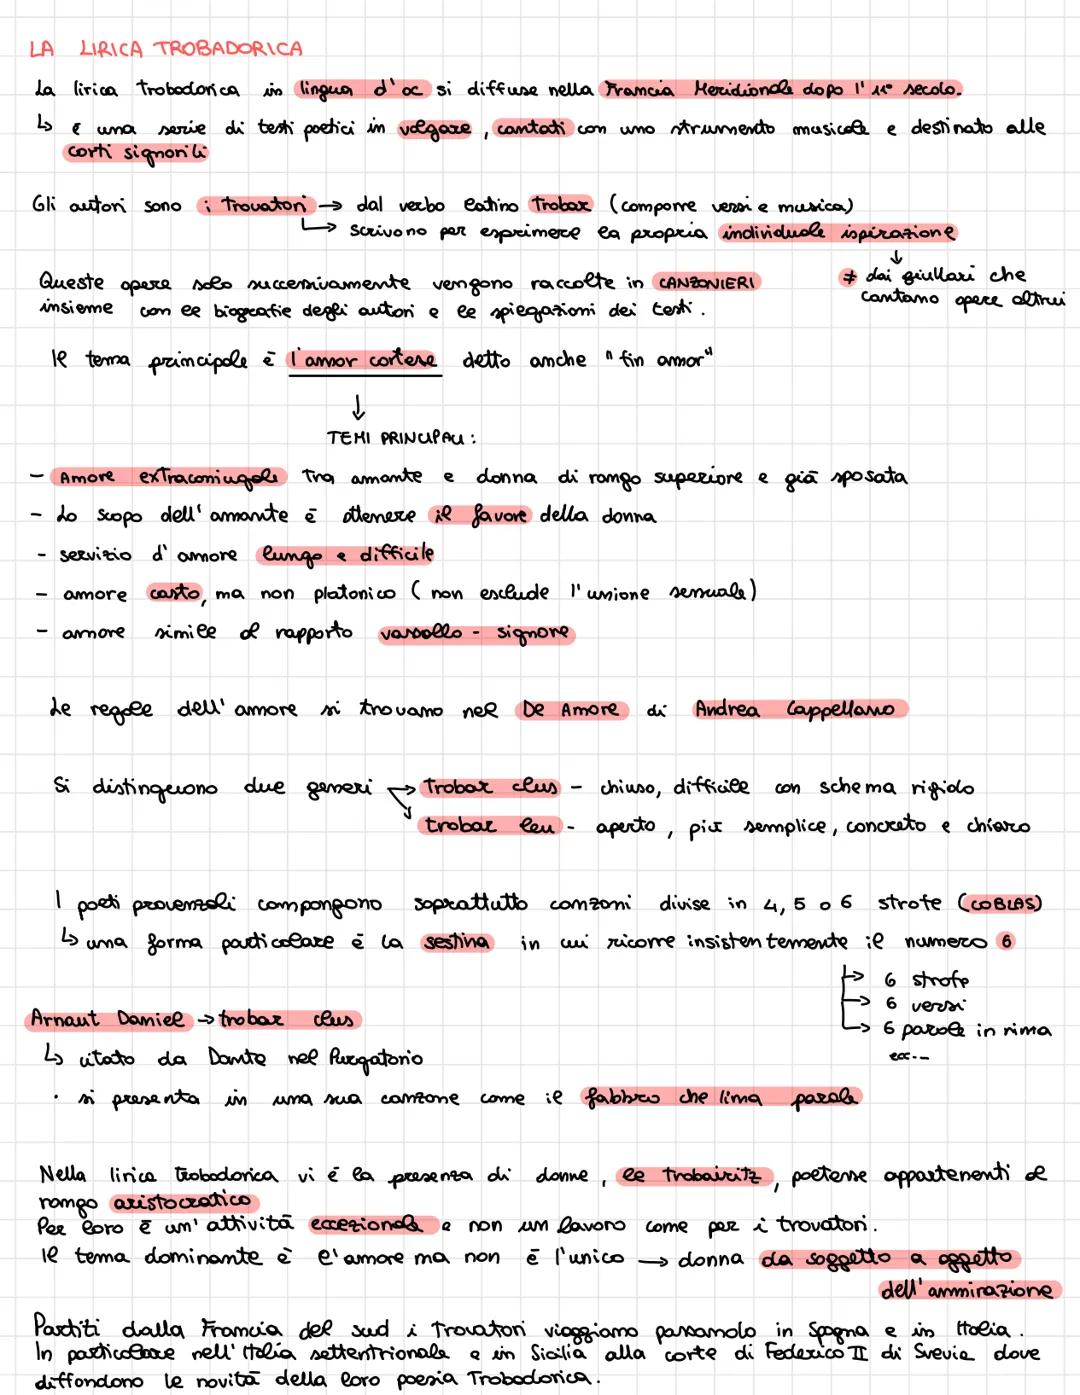 LA LIRICA TROBADORICA
La lirica trobadorica in lingua d'oc si diffuse nella Francia Meridionale dopo l'11° secolo.
↳ è una serie di testi poetici in volgare, cantati con uno strumento musicale e destinato alle
corti signorili
Gli autori sono i trovatori → dal verbo latino trobar (comporre versi e musica)
↳ scrivono per esprimere la propria individuale ispirazione
↓
≠ dai giullari che
cantano opere altrui
Queste opere solo successivamente vengono raccolte in CANZONIERI
insieme con le biografie degli autori e le spiegazioni dei testi.
Il tema principale è l'amor cortese detto anche "fin amor"
↓
TEMI PRINCIPALI:
- Amore extraconiugale tra amante e donna di rango superiore e già sposata
- Lo scopo dell'amante è ottenere il favore della donna
- servizio d'amore lungo e difficile
- amore casto, ma non platonico (non esclude l'unione sensuale)
- amore simile al rapporto vassallo - signore
Le regole dell'amore si trovano nel De Amore di Andrea Cappellano
Si distinguono due generi → trobar clus - chiuso, difficile con schema rigido
trobar leu - aperto, più semplice, concreto e chiaro
I poeti provenzali compongono soprattutto canzoni divise in 4, 5 o 6 strofe (COBLAS)
↳ una forma particolare è la sestina in cui ricorre insistentemente il numero 6
→ 6 strofe
→ 6 versi
→ 6 parole in rima
ecc...
Arnaut Daniel → trobar clus
↳ citato da Dante nel Purgatorio
· si presenta in una sua canzone come il fabbro che lima parole
Nella lirica trobadorica vi è la presenza di donne, le trobairitz, poetesse appartenenti al
rango aristocratico
Per loro è un'attività eccezionale e non un lavoro come per i trovatori.
Il tema dominante è l'amore ma non è l'unico → donna da soggetto a oggetto
dell'ammirazione
Partiti dalla Francia del sud i trovatori viaggiano passando in Spagna e in Italia.
In particolare nell'Italia settentrionale e in Sicilia alla corte di Federico II di Svevia dove
diffondono le novità della loro poesia trobadorica.